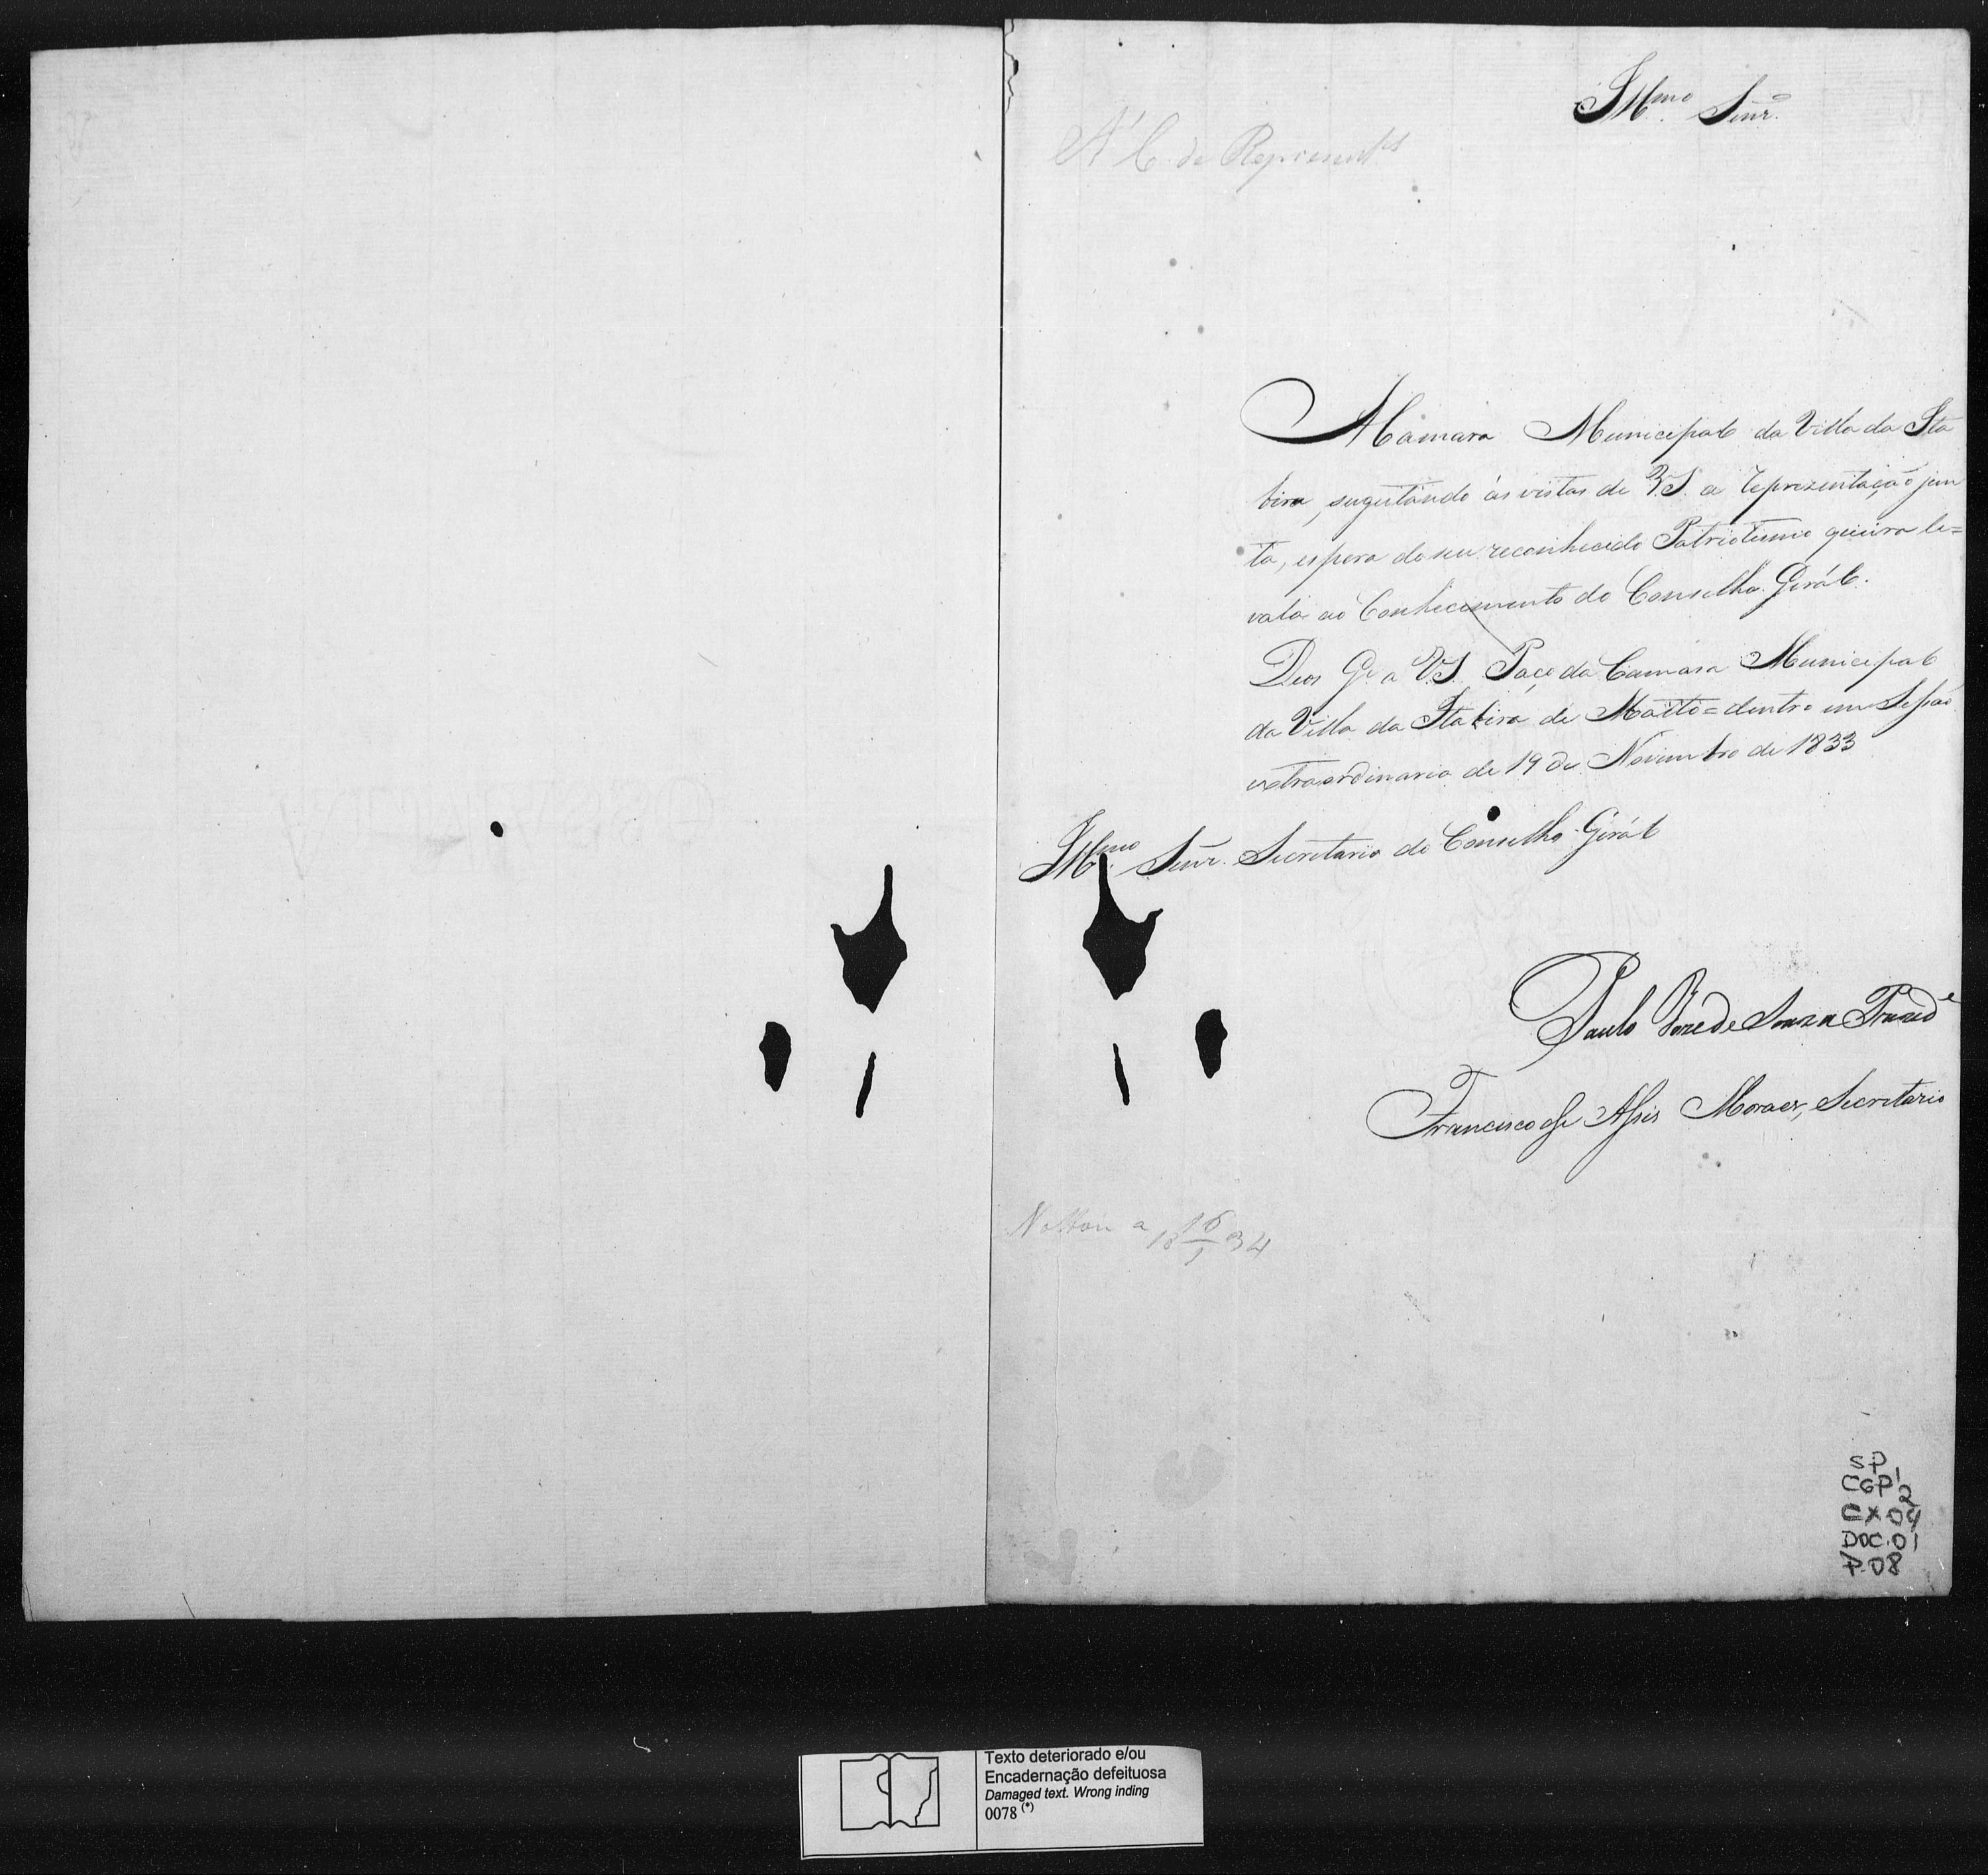 Illmo. Senr.
A' C. de Represent.es
A Camara Municipal da Villa da Ita
bira, sugeitando ás vistas de V.S. a reprezentação jun
ta, espera do seu reconhecido Patriotismo queira le=
vala ao Conhecimento do Conselho Gerál.
Deos Ge. a V.S. Paço da Camara Municipal
da Villa da Itabira de Matto=dentro em Sessaõ
extraordinaria de 19 de Novembro de 1833
Illmo. Senr. Secretario do Conselho Gerál
Paulo Joze de Souza Prezide
Francisco de Assis Moraes, Secretario
a 18 16/1 34
SP
CGP 1/2
CX 04
DOC. 01
P. 08
Texto deteriorado e/ou
Encadernação defeituosa
Damaged text. Wrong inding
0078 (*)